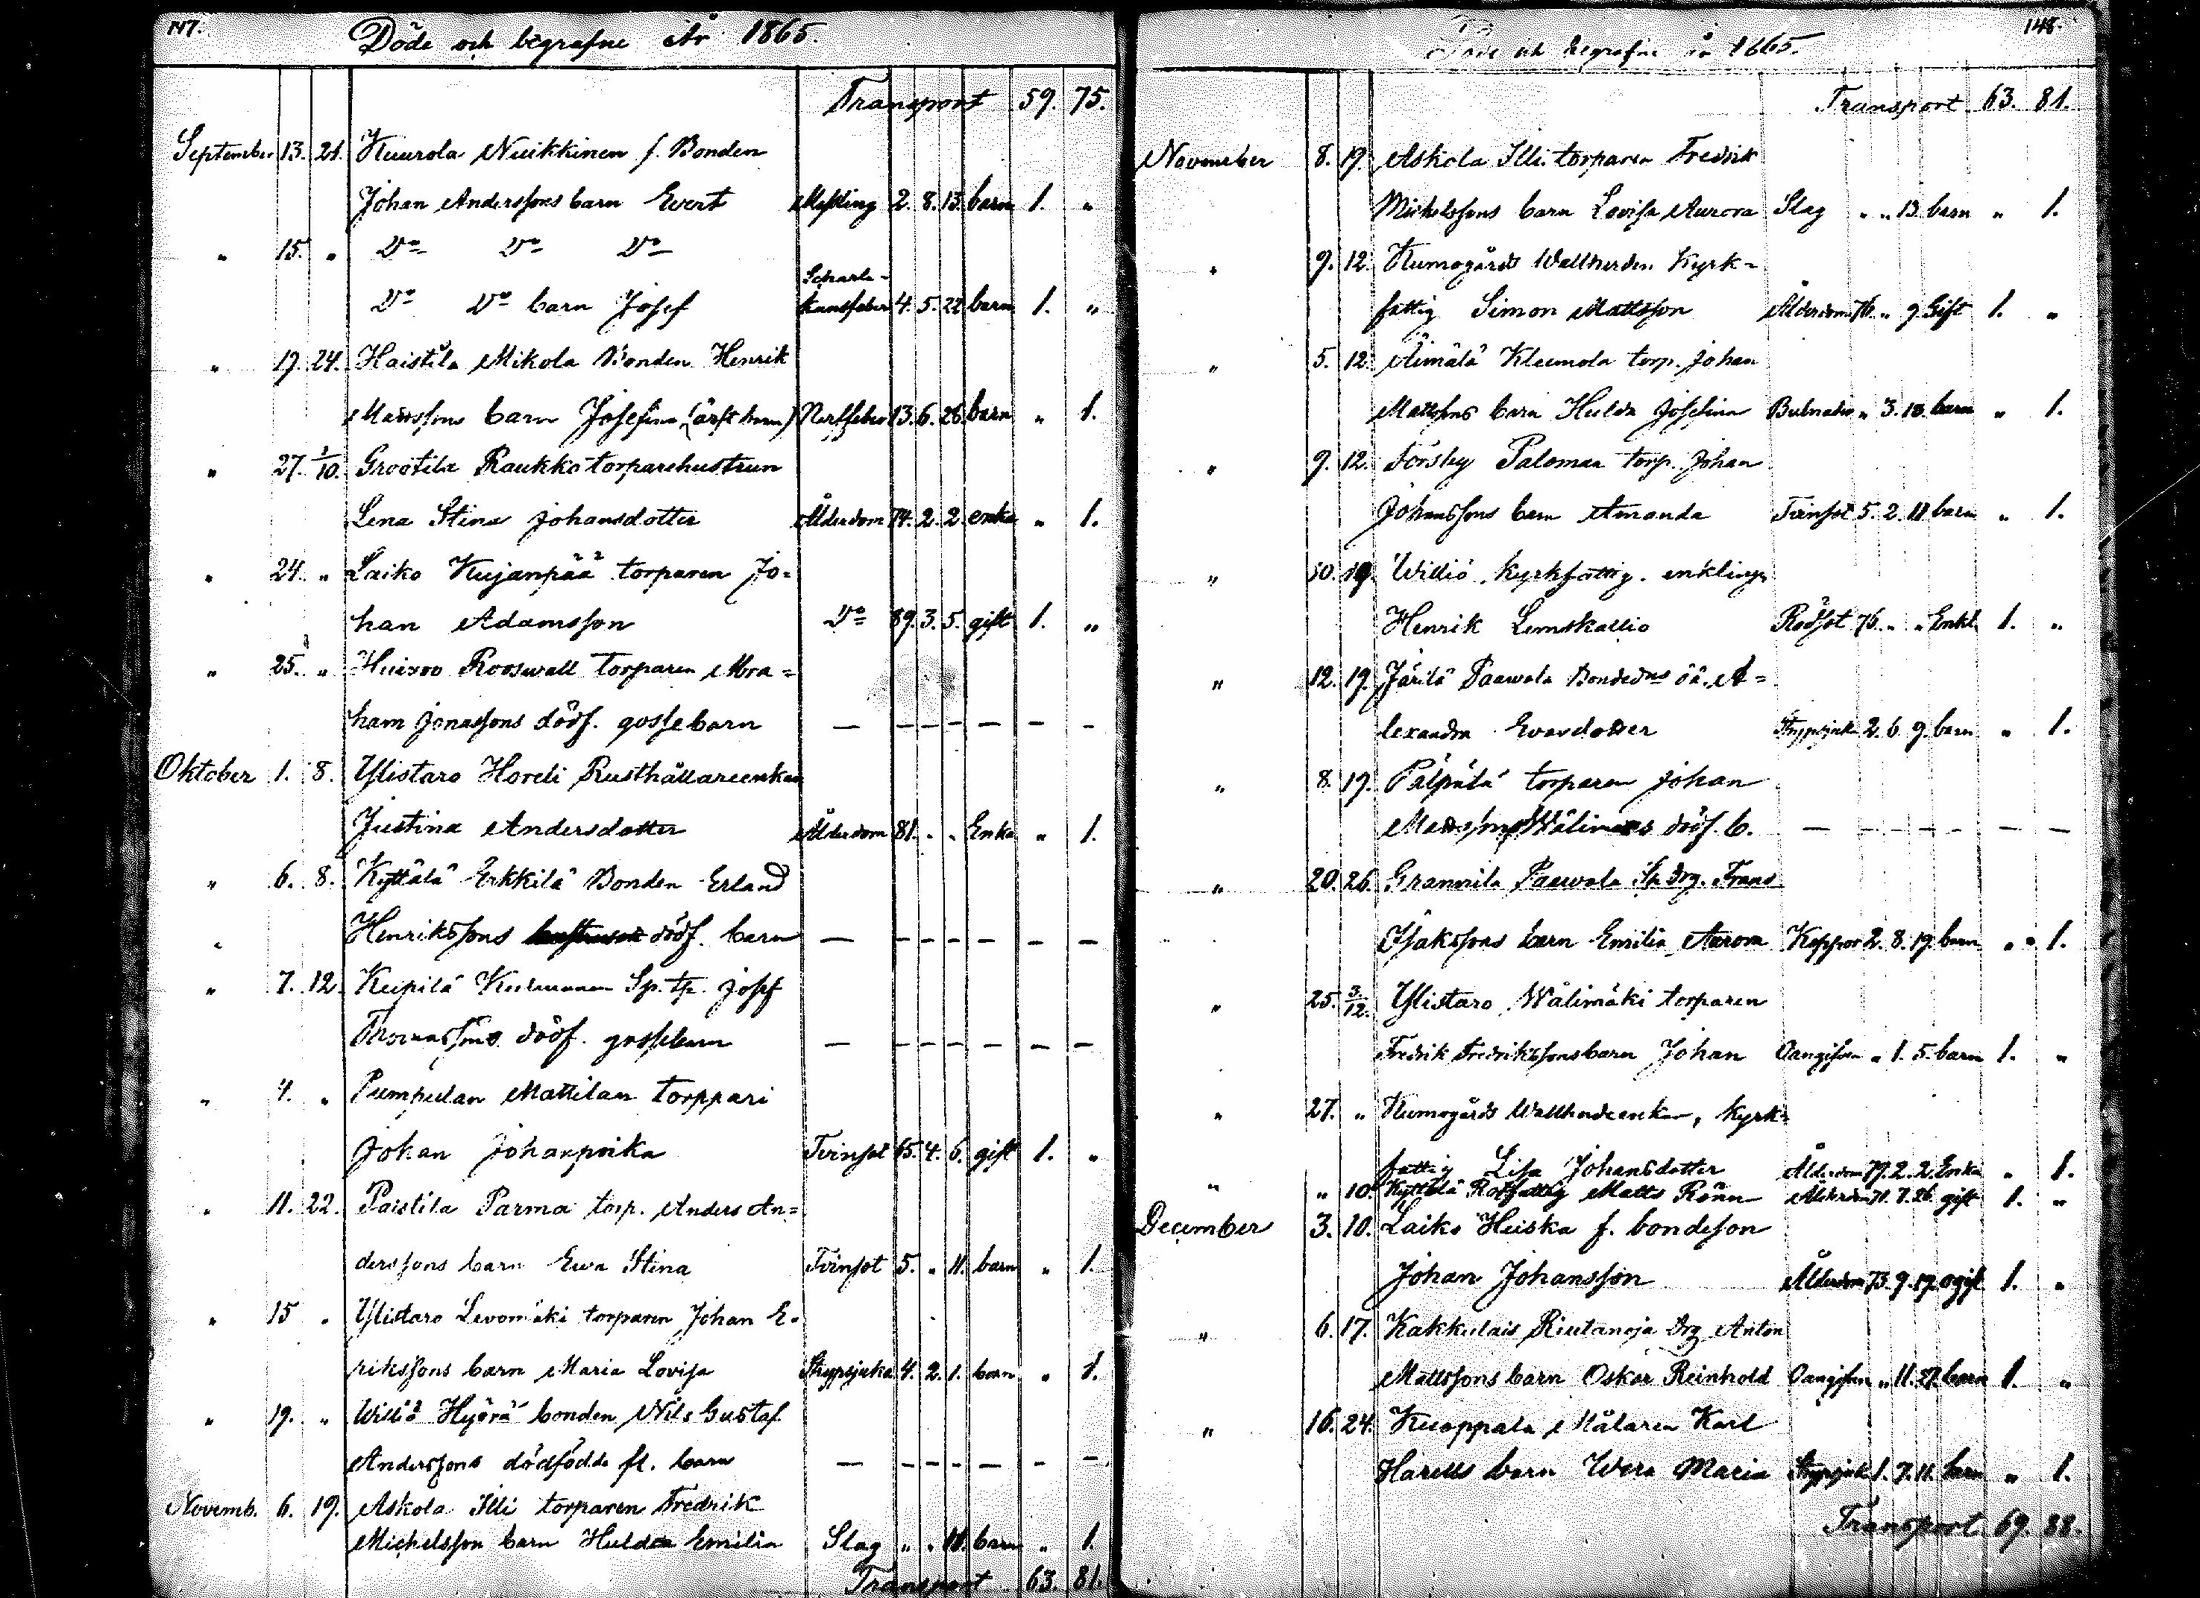 147.
Döde och begrafne år 1865.
Transport 59. 75.
September 13. 21. Kuurola Nuikkinen f. Bonden
Johan Anderssons barn Evert Messling 2. 8. 13. barn 1. "
" 15. " Do Do Do
Do Do barn Josef Scharlakansfeber 4. 5. 22 barn 1. "
" 19. 24. Haistila Mikola Bonden Henrik
Matssons barn Josefina (äkt barn) Nerffeber 13. 6. 26. barn " 1.
" 27. 1/10. Grootila Raukko torparehustrun
Lena Stina Johansdotter Ålderdom 74. 2. 2. enka " 1.
" 24. " Laiko Kujanpää torparen Jo=
han Adamsson Do 89. 3. 5. gift 1. "
" 25. " Huivoo Rooswall torparen Abra=
ham Jonassons dödf. gossebarn — — — — — — —
Oktober 1. 8. Ylistaro Horeli Rusthållareenkan
Justina Andersdotter Ålderdom 81. " " Enka " 1.
" 6. 8. Kyttälä Erkkilä Bonden Erland
" Henrikssons dödf. barn — — — — — — —
" 7. 12. Keipilä Sp. tp. Josef
Thomassons dödf. gossebarn — — — — — — —
" 4. " Pumpulan Mattilan torppari
Johan Johanpoika Tvinsot 65. 4. 6. gift 1. "
" 11. 22. Paistila Parma torp. Anders An=
derssons barn Ewa Stina Tvinsot 5. " 11. barn " 1.
" 15 " Ylistaro Levomäki torparen Johan E=
rikssons barn Maria Lovisa Strypsjuka 4. 2. 1. barn " 1.
" 19. " Williö Hyörä bonden Nils Gustaf
Anderssons dödfödde fl. barn — — — — — — —
Novemb. 6. 19. Askola Illi torparen Fredrik
Michelsson barn Hulda Emilia Slag " " 11. barn " 1.
Transport 63. 81.
148.
Döde och begrafne år 1865.
Transport 63. 81.
November 8. 19. Askola Illi torparen Fredrik
Michelssons barn Lovisa Aurora Slag " " 13. barn " 1.
" 9. 12. Kumogårds Wallherden Kyrk=
fattig Simon Mattsson Ålderdom 76. " 9. Gift 1. "
" 5. 12. Äimälä Kleemola torp. Johan
Matssons barn Hulda Josefina " 3. 18. barn " 1.
" 9. 12. Forsby Palomaa torp. Johan
Johanssons barn Amanda Tvinsot 5. 2. 11 barn " 1.
" 10. 19. Williö kyrkfattig. enkling
Henrik Lemskallio Rödsot 76. " " Enkl. 1. "
" 12. 19. Järilä Paawola Bondeds oä. A=
lexandra Evasdotter Strypsjuka 2. 6. 9. barn " 1.
" 8. 19. Pälpälä torparen Johan
Mattssons Wälimäs dödf. b. — — — — — — —
" 20. 26. Granvila Paawola Sp. drg. Frans
Isakssons barn Emilia Aurora Koppor 2. 8. 19. barn " 1.
" 25. 3/12. Ylistaro Wälimäki torparen
Fredrik Fredrikssons barn Johan Oangifven " 1. 5. barn 1. "
" 27. " Kumogårds Wallherdeenkan, kyrk=
fattig Lisa Johansdotter Ålderdom 79. 2. 2. Enka " 1.
" " 10. Kyttälä Rotfattig Matts Rönn Ålderdom 71. 7. 26. gift 1. "
December 3. 10. Laiko Heiska f. bondeson
Johan Johansson Ålderdom 73. 9. 17. ogift 1. "
" 6. 17. Kakkulais Riutanoja Drg Anton
Mattssons barn Oskar Reinhold Oangifven " 11. 27. barn 1. "
" 16. 24. Kuoppala Målaren Karl
Harells barn Wera Maria Strypsjuk 1. 7. 11. barn " 1.
Transport 69. 88.